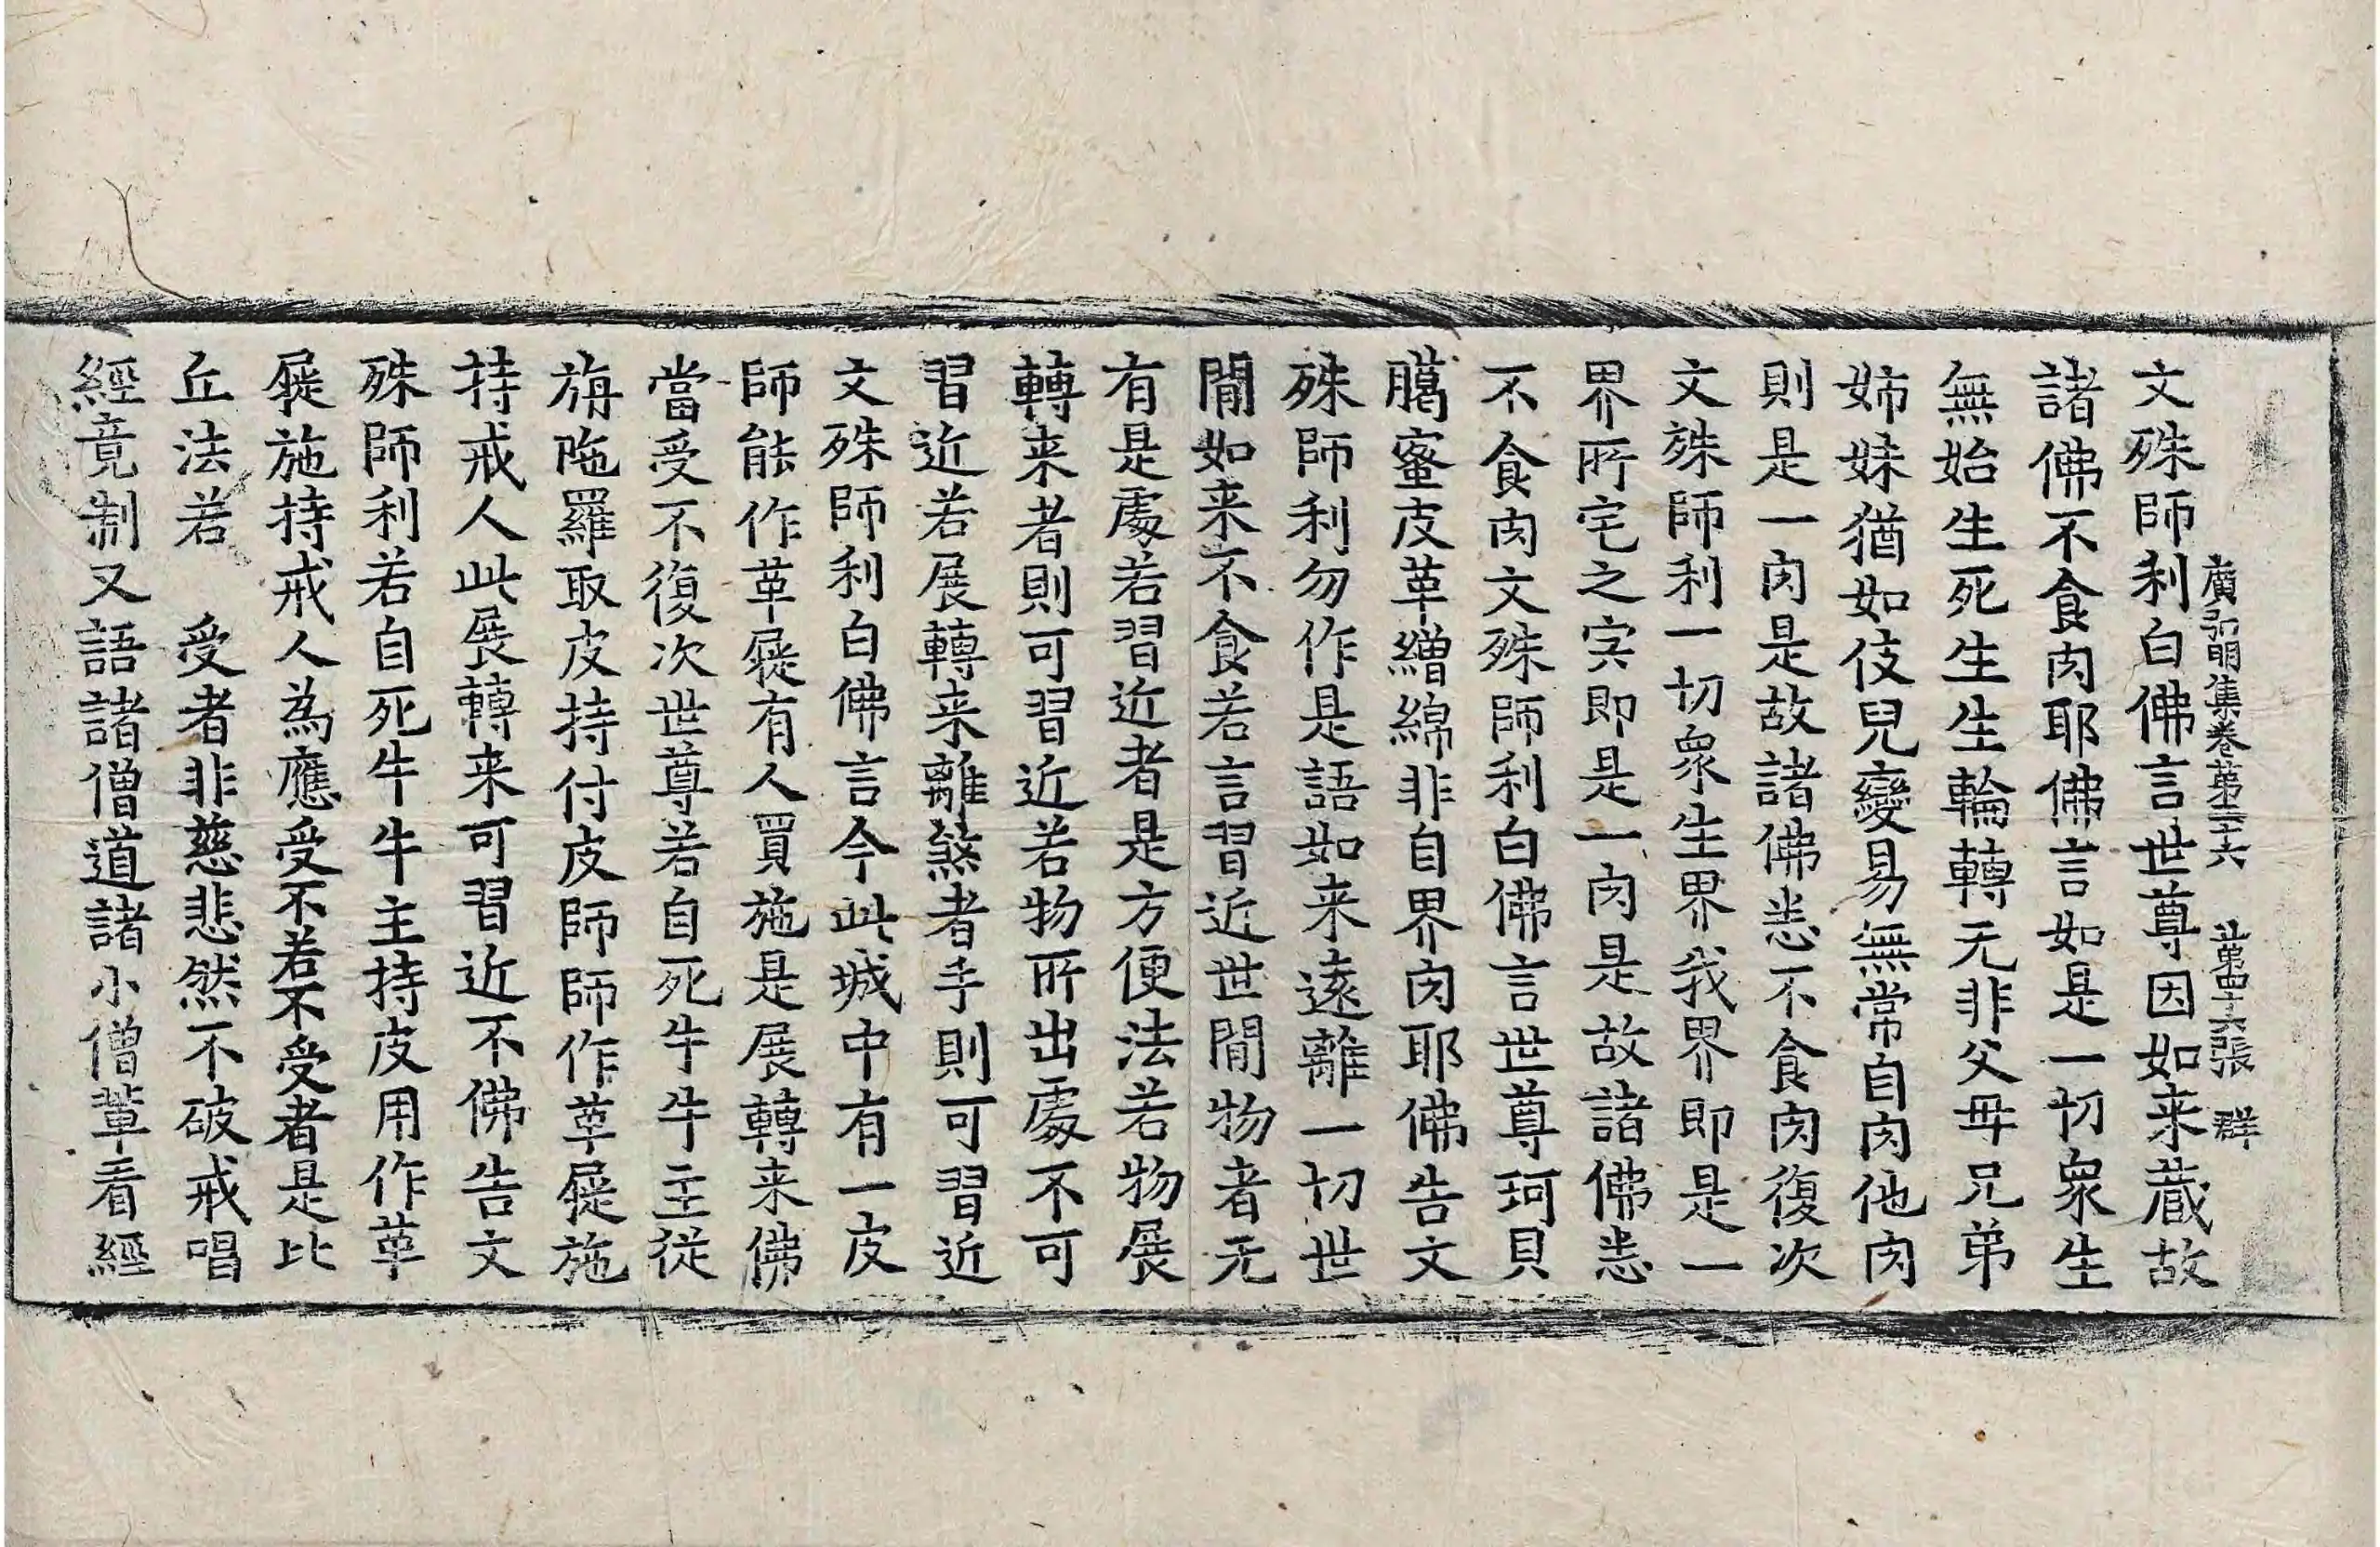 廣弘明集卷苐二十六　苐四十六張　群
文殊師利白佛言世尊因如来藏故
諸佛不食肉耶佛言如是一切衆生
無始生死生生輪轉无非父母兄弟
姉妹猶如伎兒變易無常自肉他肉
則是一肉是故諸佛悉不食肉復次
文殊師利一切衆生界我界即是一
界所宅之宍即是一肉是故諸佛悉
不食肉文殊師利白佛言世尊珂貝
臈蜜皮革繒綿非自界肉耶佛告文
殊師利勿作是語如来遠離一切世
閒如来不食若言習近世閒物者无
有是處若習近者是方便法若物展
轉来者則可習近若物所出處不可
習近若展轉来離煞者手則可習近
文殊師利白佛言今此城中有一皮
師能作革屣有人買施是展轉来佛
當受不復次世尊若自死牛牛主従
旃陁羅取皮持付皮師師作革屣施
持戒人此展轉来可習近不佛告文
殊師利若自死牛牛主持皮用作革
屣施持戒人為應受不若不受者是比
丘法若　受者非慈悲然不破戒唱
經竟制又語諸僧道諸小僧輩看經